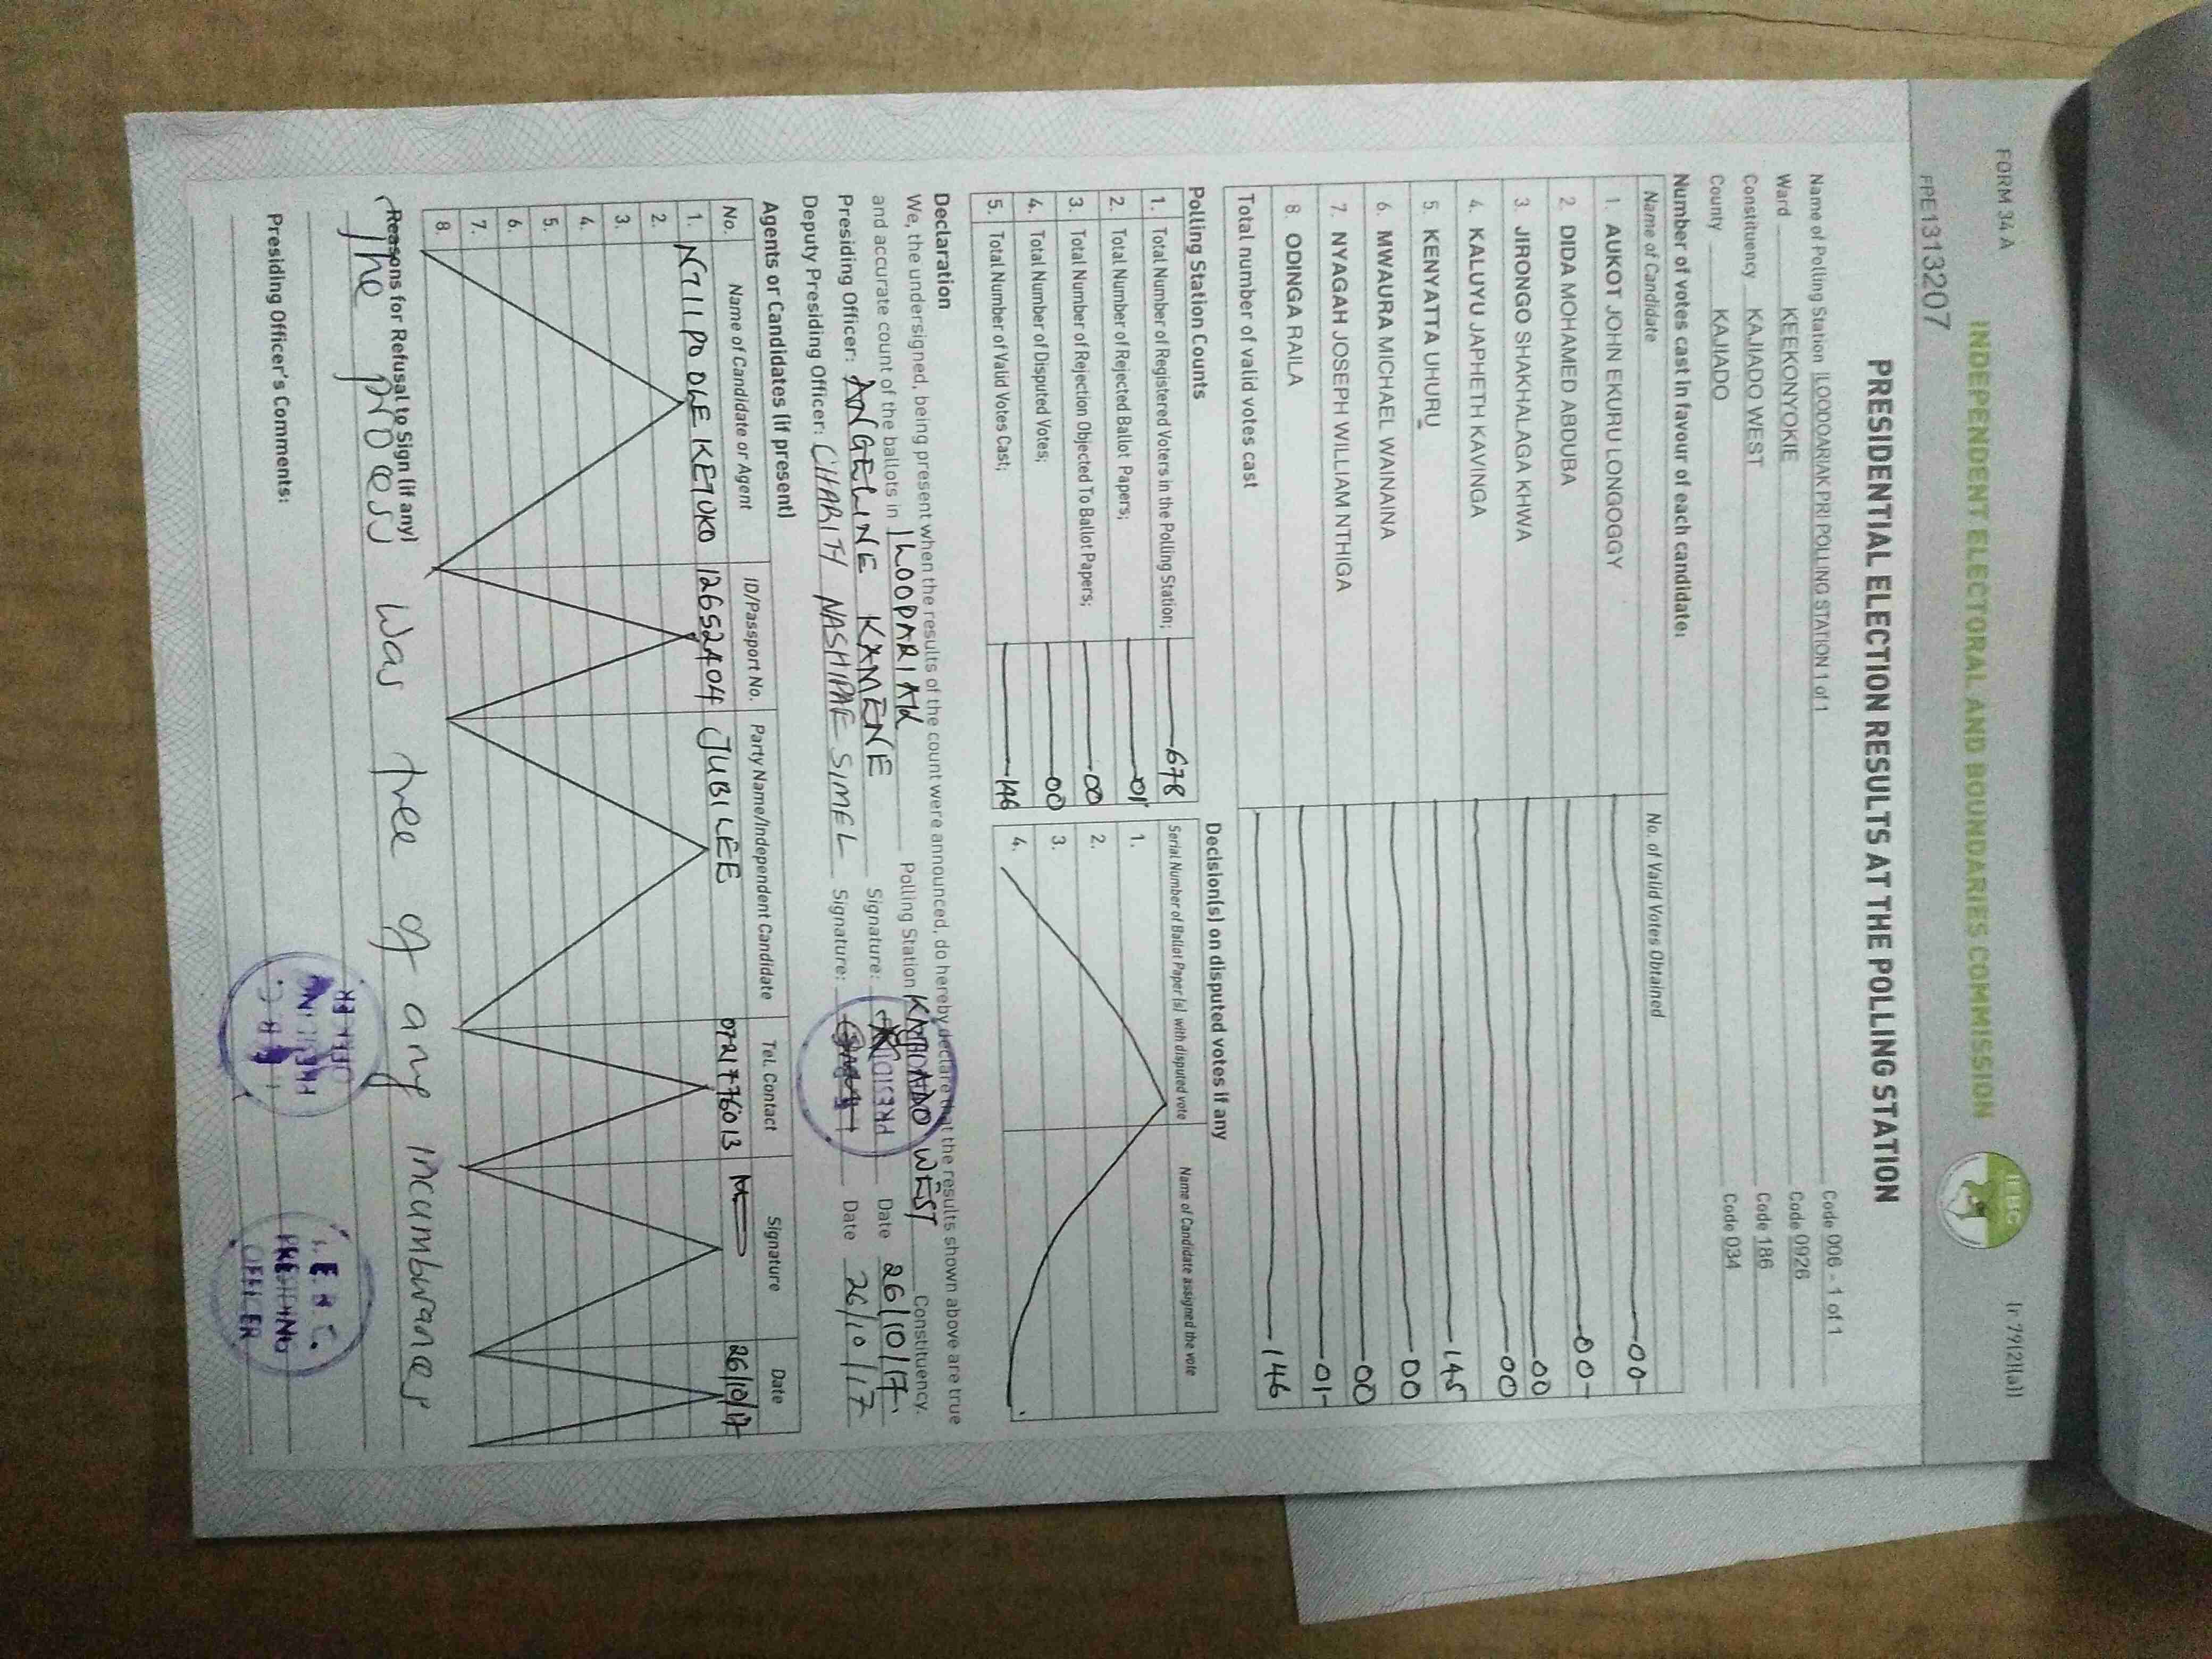 FORM 34 A
(r 79(2)(a))
INDEPENDENT ELECTORAL AND BOUNDARIES COMMISSION
IEBC
FPE1313207
PRESIDENTIAL ELECTION RESULTS AT THE POLLING STATION
Name of Polling Station ILOODOARIAK PRI POLLING STATION 1 of 1 Code 006 - 1 of 1
Ward KEEKONYOKIE Code 0926
Constituency KAJIADO WEST Code 186
County KAJIADO Code 034
Number of votes cast in favour of each candidate:
Name of Candidate No. of Valid Votes Obtained
1. AUKOT JOHN EKURU LONGOGGY 00
2. DIDA MOHAMED ABDUBA 00
3. JIRONGO SHAKHALAGA KHWA 00
4. KALUYU JAPHETH KAVINGA 00
5. KENYATTA UHURU 145
6. MWAURA MICHAEL WAINAINA 00
7. NYAGAH JOSEPH WILLIAM NTHIGA 00
8. ODINGA RAILA 01
Total number of valid votes cast 146
Polling Station Counts
1. Total Number of Registered Voters in the Polling Station; 678
2. Total Number of Rejected Ballot Papers; 01
3. Total Number of Rejection Objected To Ballot Papers; 00
4. Total Number of Disputed Votes; 00
5. Total Number of Valid Votes Cast; 146
Decision(s) on disputed votes if any
Serial Number of Ballot Paper (s) with disputed vote Name of Candidate assigned the vote
1.
2.
3.
4.
Declaration
We, the undersigned, being present when the results of the count were announced, do hereby declare that the results shown above are true
and accurate count of the ballots in ILOODARIAK Polling Station KAJIADO WEST Constituency.
Presiding Officer: ANGELINE KAMENE Signature: Date 26/10/17
Deputy Presiding Officer: CHARITY NASHIPAE SIMEL Signature: Date 26/10/17
Agents or Candidates (if present)
No. Name of Candidate or Agent ID/Passport No. Party Name/Independent Candidate Tel. Contact Signature Date
1. NTIIPO OLE KETUKO 12652404 JUBILEE 0721776013 26/10/17
2.
3.
4.
5.
6.
7.
8.
Reasons for Refusal to Sign (if any)
The process was free of any incumburances
Presiding Officer's Comments:
I.E.B.C.
PRESIDING
OFFICER